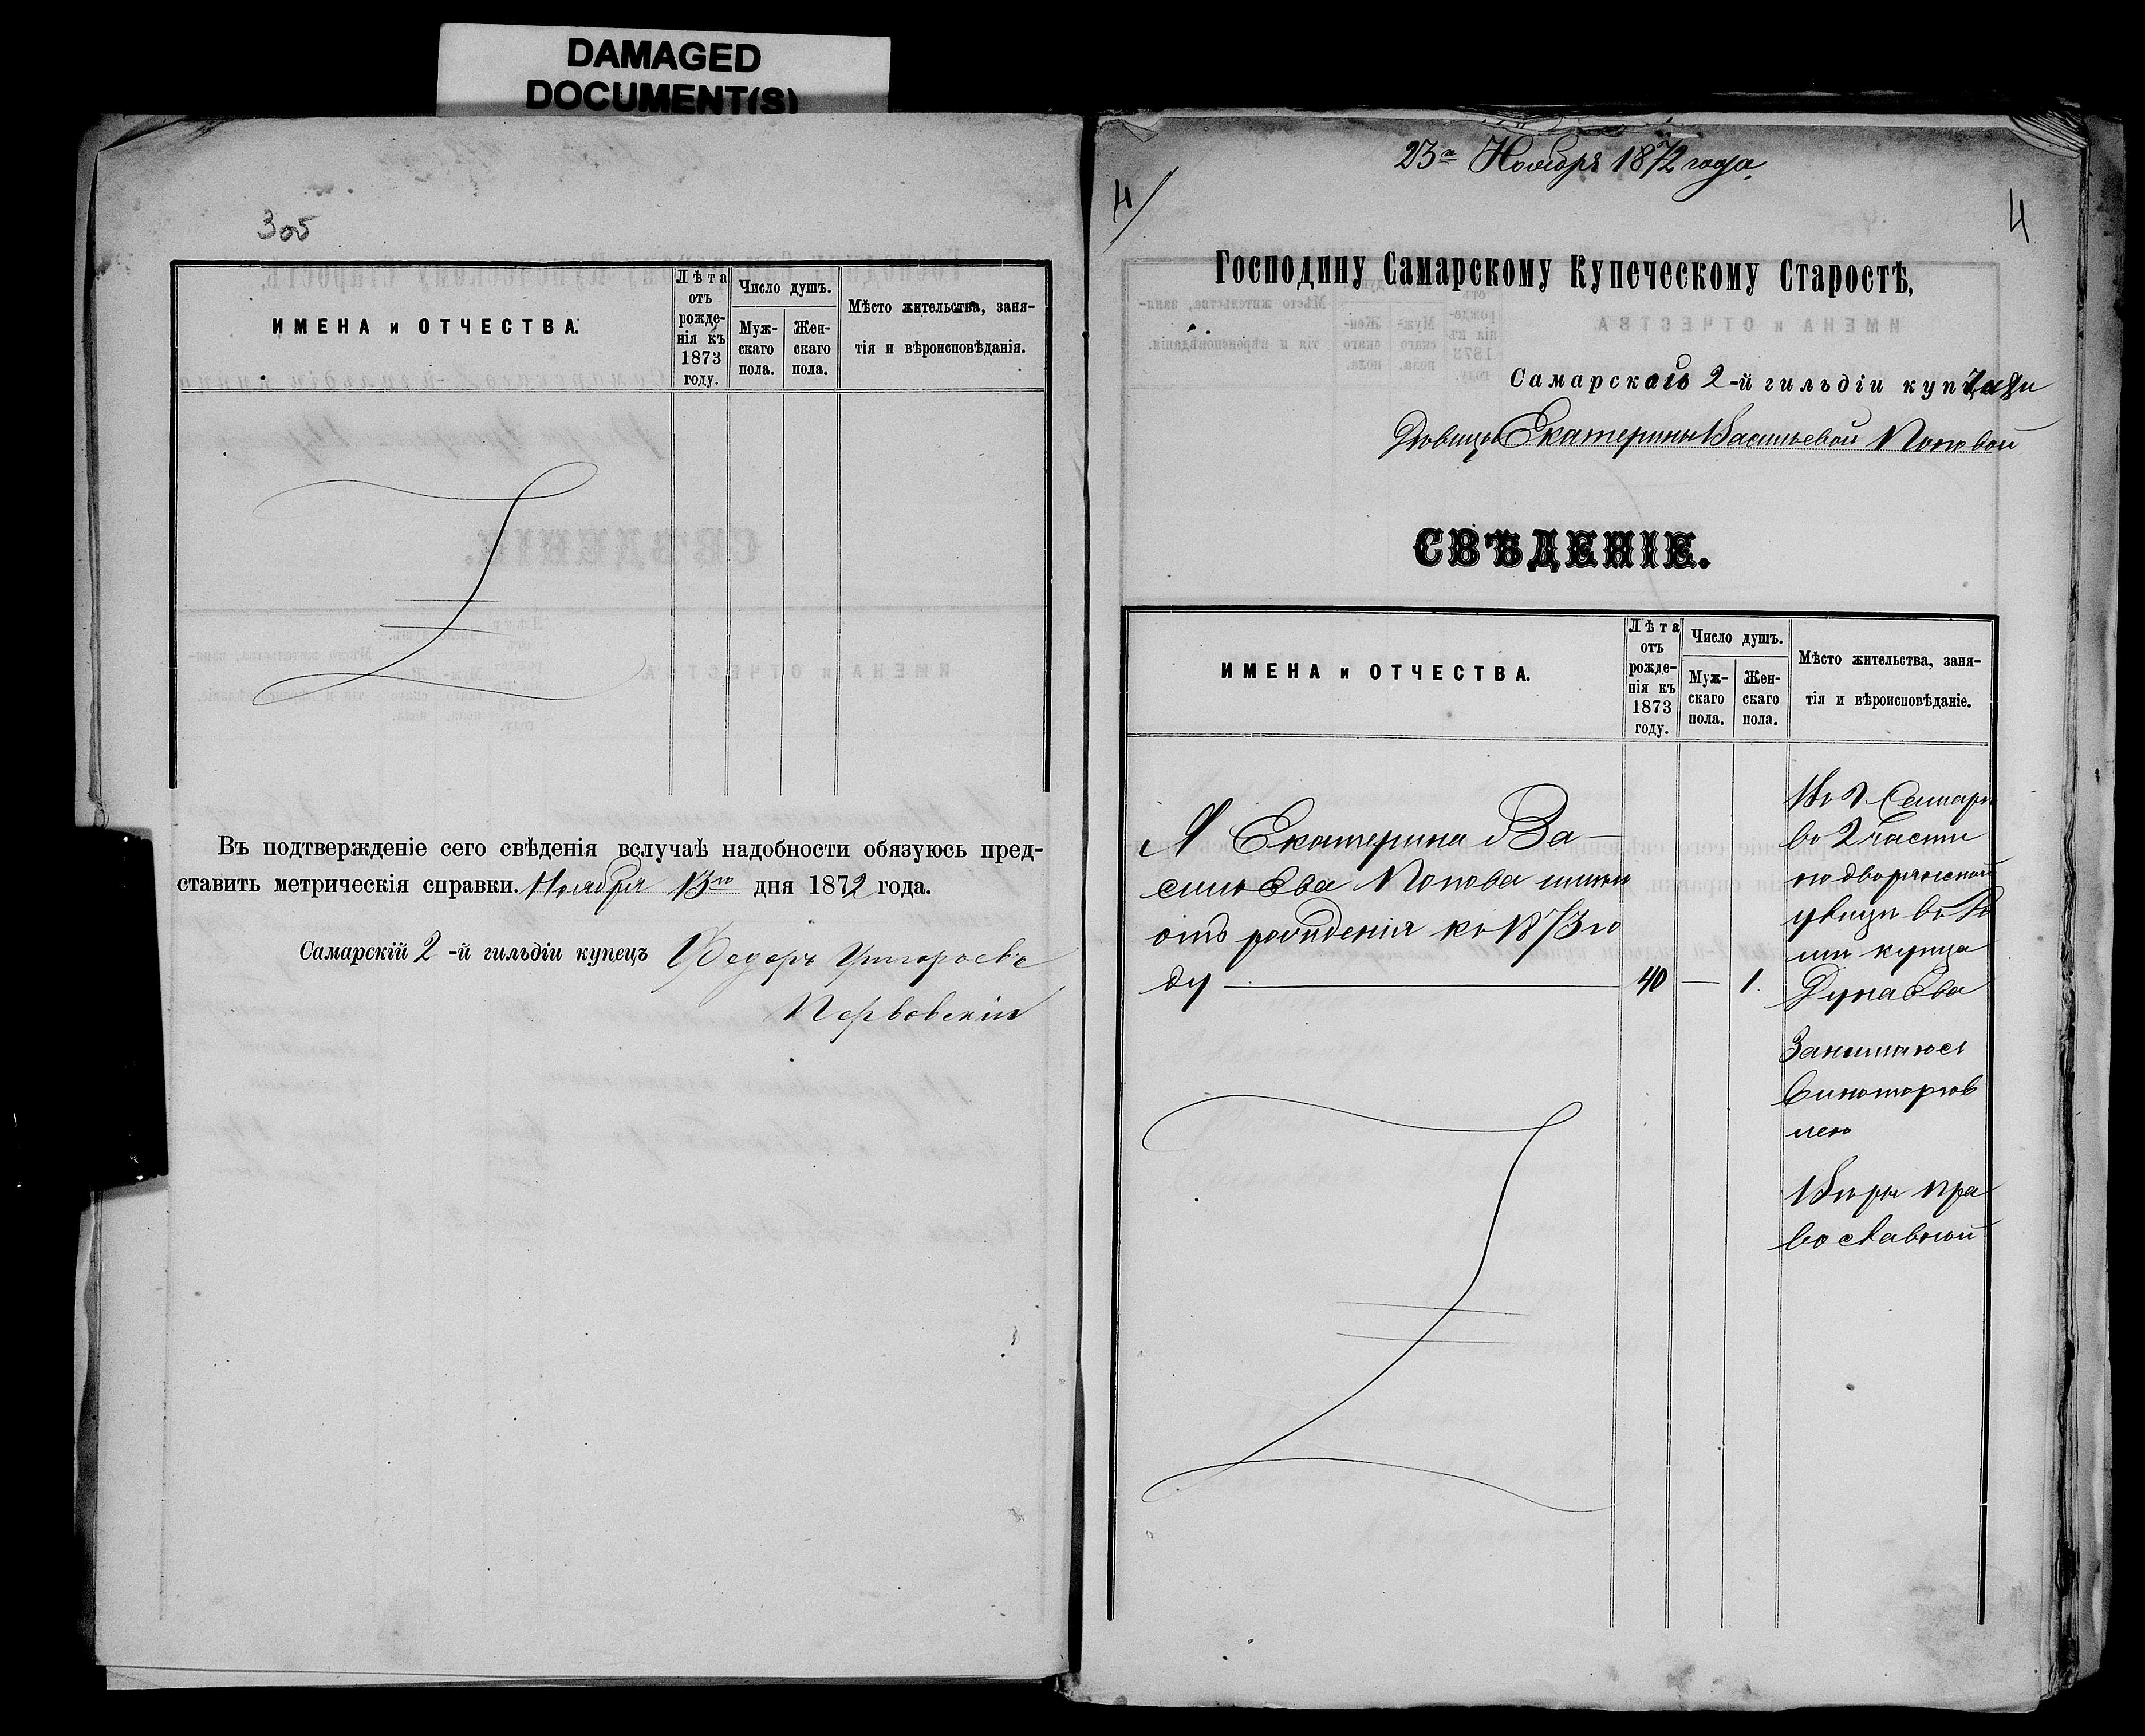 DAMAGED
DOCUMENT(S)
3об
ИМЕНА и ОТЧЕСТВА.
Лѣта
отъ
рожде-
нія къ
1873
году.
Число душъ.
Муж-
скаго
пола.
Жен-
скаго
пола.
Мѣсто жительства, заня-
тія и вѣроисповѣданія.
Въ подтвержденіе сего свѣденія вслучаѣ надобности обязуюсь пред-
ставить метрическія справки. Ноября 13го дня 1872 года.
Самарскій 2-й гильдіи купецъ Федоръ Григорьевъ
23го Ноября 1872 года.
4
4
Господину Самарскому Купеческому Старостѣ,
Самарской 2-й гильдіи
Екатерины Васильевой Поповой
СВѢДЕНІЕ.
ИМЕНА и ОТЧЕСТВА.
Лѣта
отъ
рожде-
нія къ
1873
году.
Число душъ.
Муж-
скаго
пола.
Жен-
скаго
пола.
Мѣсто жительства, заня-
тія и вѣроисповѣданіе.
Я Екатерина Ва-
сильева Попова имѣю
отъ рожденія къ 1873 го
ду — 40 — 1.
Въ г. Самарѣ
во 2 части
по дворянской
улицѣ въ до
мѣ купца
Дунаева
Занимаюсь
Виноторгов
лею
Вѣры пра
вославной